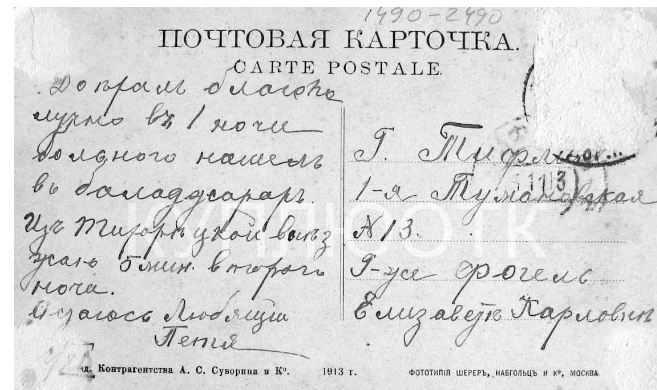 1490-2490
ПОЧТОВАЯ КАРТОЧКА.
CARTE POSTALE.
Доѣхалъ благопо
лучно въ 1 ночи
нашелъ
въ
Изъ Тихорѣцкой выѣз
жаю 5 мин. второго
ночи.
Остаюсь Любящiй
Петя
Г. Тифл
1-я Тумановская
№ 13.
Г-же Фогель
Елизаветѣ Карловнѣ
КУПЛЮ К
1113
Контрагентства А. С. Суворина и Кº. 1913 г. ФОТОТИПІЯ ШЕРЕРЪ, НАБГОЛЬЦЪ И Кº, МОСКВА